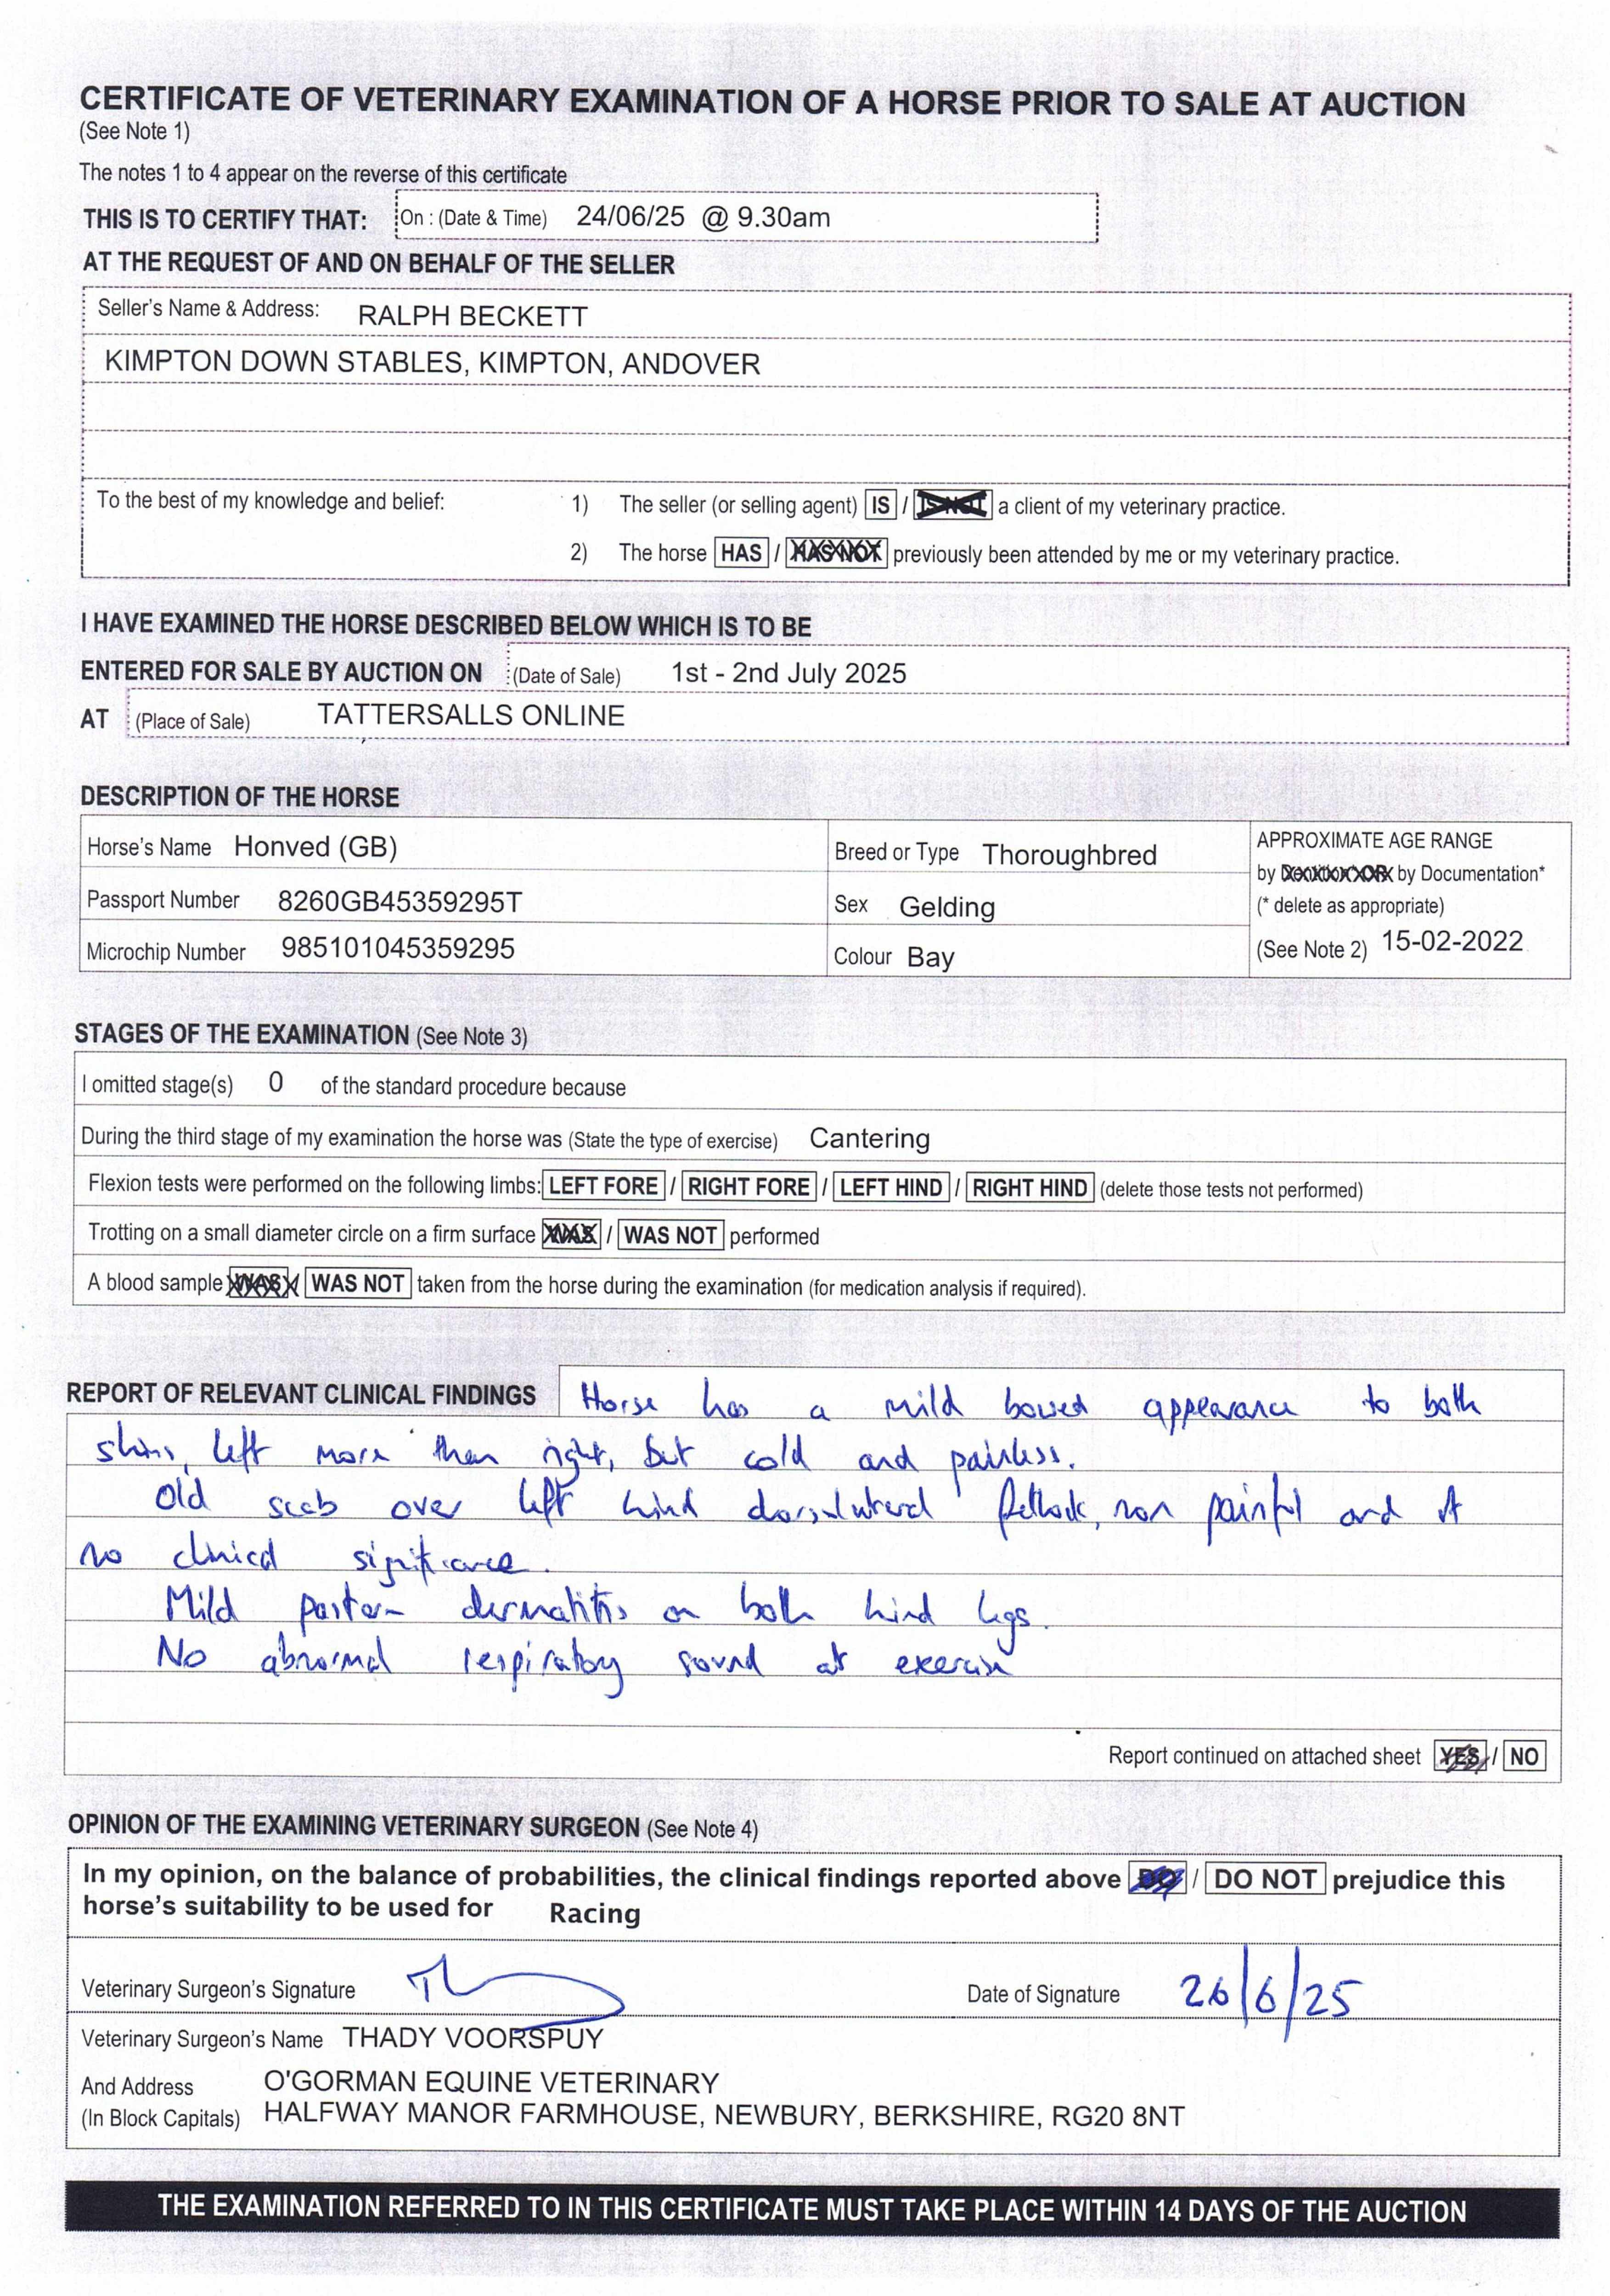 CERTIFICATE OF VETERINARY EXAMINATION OF A HORSE PRIOR TO SALE AT AUCTION
(See Note 1)
The notes 1 to 4 appear on the reverse of this certificate
THIS IS TO CERTIFY THAT: On : (Date & Time) 24/06/25 @ 9.30am
AT THE REQUEST OF AND ON BEHALF OF THE SELLER
Seller's Name & Address: RALPH BECKETT
KIMPTON DOWN STABLES, KIMPTON, ANDOVER
To the best of my knowledge and belief: 1) The seller (or selling agent) IS / IS NOT a client of my veterinary practice.
2) The horse HAS / HAS NOT previously been attended by me or my veterinary practice.
I HAVE EXAMINED THE HORSE DESCRIBED BELOW WHICH IS TO BE
ENTERED FOR SALE BY AUCTION ON (Date of Sale) 1st - 2nd July 2025
AT (Place of Sale) TATTERSALLS ONLINE
DESCRIPTION OF THE HORSE
Horse's Name Honved (GB) Breed or Type Thoroughbred APPROXIMATE AGE RANGE
by OR by Documentation*
Passport Number 8260GB45359295T Sex Gelding (* delete as appropriate)
Microchip Number 985101045359295 Colour Bay (See Note 2) 15-02-2022
STAGES OF THE EXAMINATION (See Note 3)
I omitted stage(s) 0 of the standard procedure because
During the third stage of my examination the horse was (State the type of exercise) Cantering
Flexion tests were performed on the following limbs: LEFT FORE / RIGHT FORE / LEFT HIND / RIGHT HIND (delete those tests not performed)
Trotting on a small diameter circle on a firm surface WAS / WAS NOT performed
A blood sample WAS / WAS NOT taken from the horse during the examination (for medication analysis if required).
REPORT OF RELEVANT CLINICAL FINDINGS Horse has a mild bowed appearance to both
shins, left more than right, but cold and painless.
Old scab over left hind dorsolateral fetlock, non painful and of
no clinical significance.
Mild pastern dermatitis on both hind legs.
No abnormal respiratory sound at exercise
Report continued on attached sheet YES / NO
OPINION OF THE EXAMINING VETERINARY SURGEON (See Note 4)
In my opinion, on the balance of probabilities, the clinical findings reported above DO / DO NOT prejudice this
horse's suitability to be used for Racing
Veterinary Surgeon's Signature Date of Signature 26/6/25
Veterinary Surgeon's Name THADY VOORSPUY
And Address O'GORMAN EQUINE VETERINARY
(In Block Capitals) HALFWAY MANOR FARMHOUSE, NEWBURY, BERKSHIRE, RG20 8NT
THE EXAMINATION REFERRED TO IN THIS CERTIFICATE MUST TAKE PLACE WITHIN 14 DAYS OF THE AUCTION